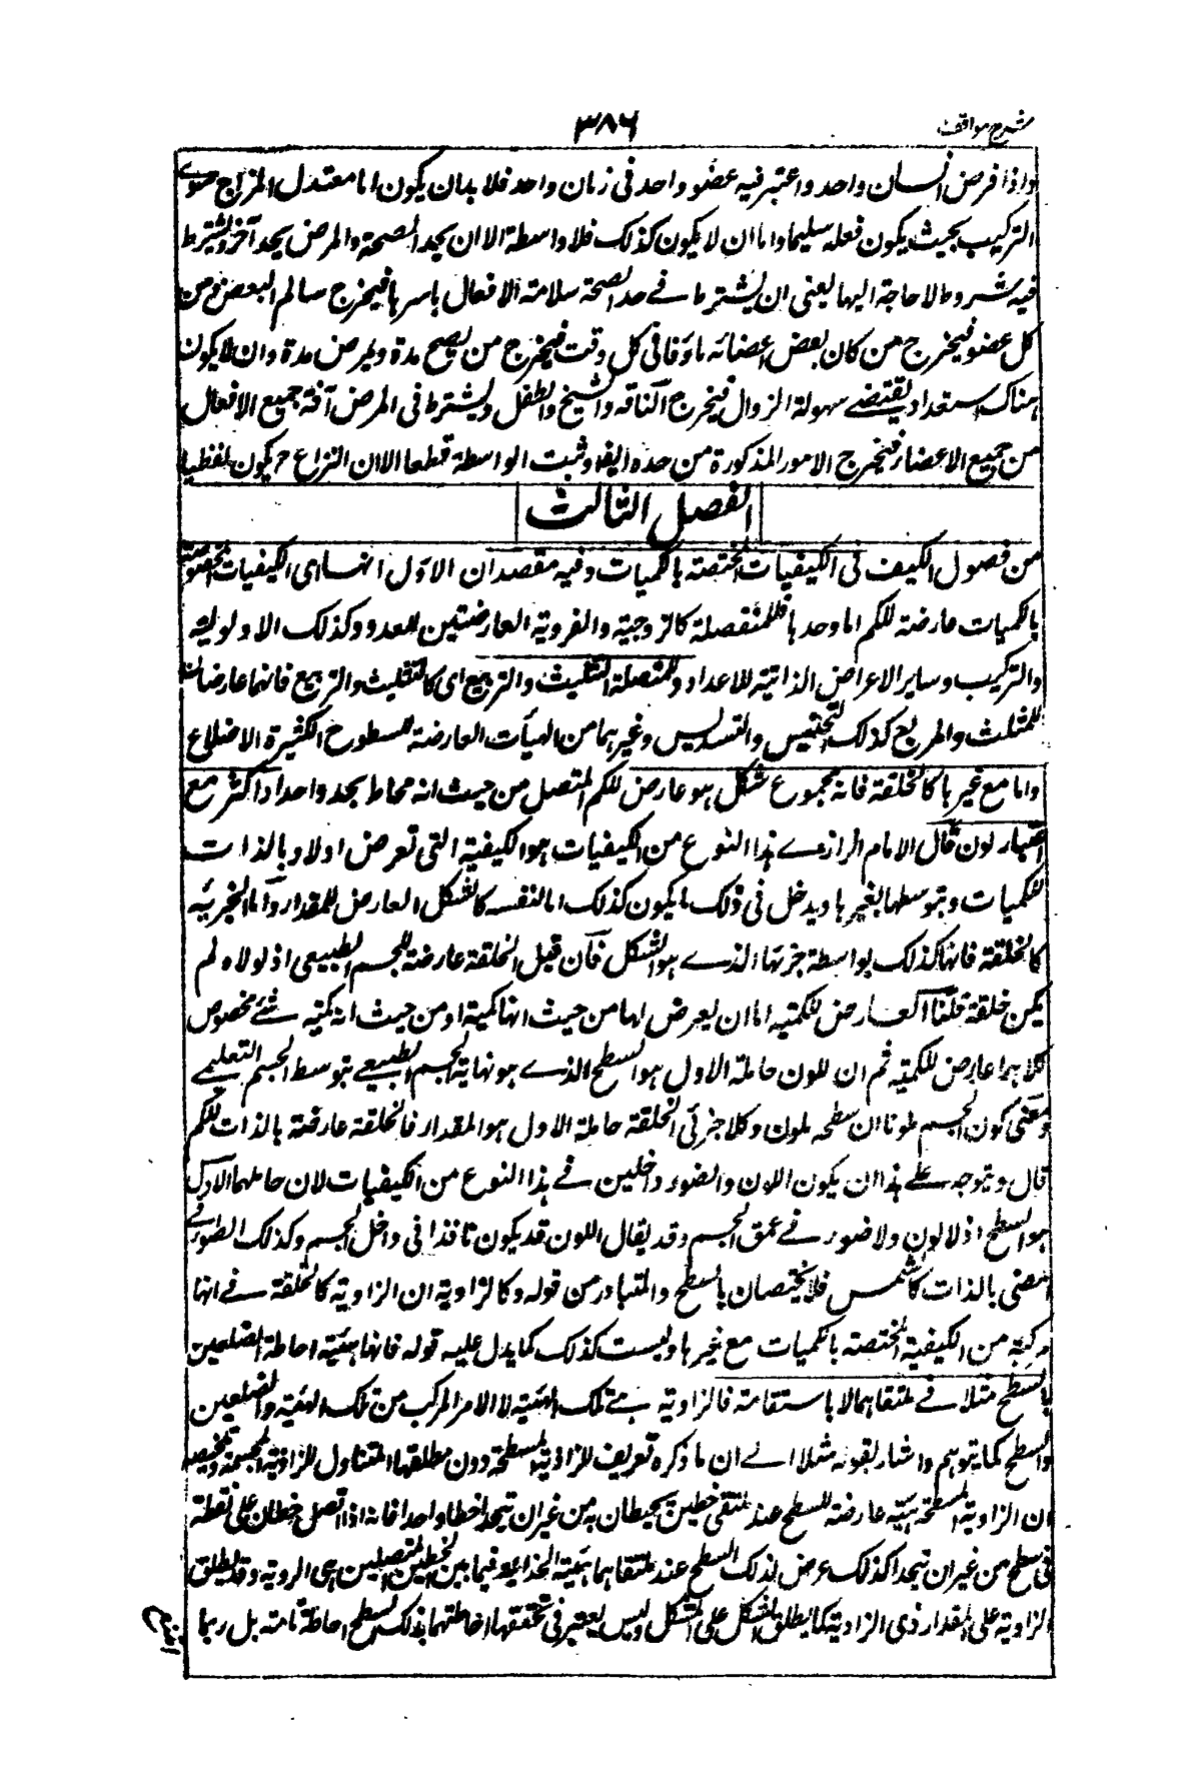 شرح مواقف
٣٨٦
واذا فرض انسان واحد واعتبر فيه عضو واحد فى زمان واحد فلا بد ان يكون اما معتدل المزاج سوى
التركيب بحيث يكون فعله سليما واما ان لا يكون كذلك فلا واسطة الا ان يحد الصحة والمرض بحد آخر ويشترط
فيه شروط لا حاجة اليها يعنى ان يشترط فے حد الصحة سلامة الافعال باسرها فيخرج سالم البعض ومن
كل عضو فيخرج من كان بعض اعضائه ماؤفا فى كل وقت فيخرج من يصح مدة ويمرض مدة وان لا يكون
هناك استعداد يقتضے سهولة الزوال فيخرج الناقه والشيخ والطفل ويشترط فى المرض آفة جميع الافعال
من جميع الاعضاء فيخرج الامور المذكورة من حده ايضا وثبت الواسطة قطعا الا ان النزاع ح يكون لفظيا
الفصل الثالث
من فصول الكيف فى الكيفيات المختصة بالكميات وفيه مقصدان الاول انها اى الكيفيات المختصة
بالكميات عارضة للكم اما وحدها فللمنفصلة كالزوجية والفردية العارضتين للعدد وكذلك الاولوية
والتركيب وساير الاعراض الذاتية للاعداد وللمتصلة التثليث والتربيع اى كالتثليث والتربيع فانهما عارضان
للمثلث والمربع كذلك التخميس والتسديس وغيرهما من الهيأت العارضة للسطوح الكثيرة الاضلاع
واما مع غيرها كالخلقة فانه مجموع شكل هو عارض للكم المتصل من حيث انه محاط بحد واحد او اكثر مع
اعتبار لون قال الامام الرازے هذا النوع من الكيفيات هو الكيفية التى تعرض اولا وبالذات
للكميات وبتوسطها لغيرها ويدخل فى ذلك ما يكون كذلك اما لنفسه كالشكل العارض للمقدار واما لجزئيه
كالخلقة فانها كذلك بواسطة جزئها الذے هو الشكل فان قيل الخلقة عارضة للجسم الطبيعى اذ لولاه لم
يكن خلقة قلنا العارض للكمية اما ان يعرض لها من حيث انها كمية او من حيث انه كمية شئ مخصوص
كلاهما عارض للكمية ثم ان للون حامله الاول هو السطح الذے هو نهاية الجسم الطبيعے بتوسط الجسم التعليمے
ومعنى كون الجسم ملونا ان سطحه ملون وكلا جزئى الخلقة حامله الاول هو المقدار فالخلقة عارضة بالذات للكم
قال ويتوجه علے هذا ان يكون اللون والضوء داخلين فے هذا النوع من الكيفيات لان حاملهما الاول
هو السطح اذ لا لون ولا ضوء فے عمق الجسم وقد يقال اللون قد يكون نافذا فى داخل الجسم وكذلك الضوء فے
المضى بالذات كالشمس فلا يختصان بالسطح والمتبادر من قوله وكالزاوية ان الزاوية كالخلقة فے انها
مركبة من الكيفية المختصة بالكميات مع غيرها وليست كذلك كما يدل عليه قوله فانها هيئة احاطة الضلعين
بالسطح مثلا فے ملتقاهما لا باستقامة فالزاوية هے تلك الهيئة لا الامر المركب من تلك الهيئة والضلعين
والسطح كما يتوهم واشار بقوله مثلا الے ان ما ذكره تعريف للزاوية المسطحة دون مطلقها المتناول للزاوية المجسمة وتلخيصه
ان الزاوية المسطحة هيئة عارضة للسطح عند ملتقى خطين يحيطان به من غير ان يتحدا خطا واحدا فانه اذا اتصل خطان على نقطة
فى سطح من غير ان يتحدا كذلك عرض لذلك السطح عند ملتقاهما هيئة انحدابية فيما بين الخطين المتصلين هى الزوية وقد يطلق
الزاوية على المقدار ذى الزاوية كما يطلق الشكل على المشكل وليس يعتبر فى تحققها احاطتهما بذلك السطح احاطة تامة بل ربما